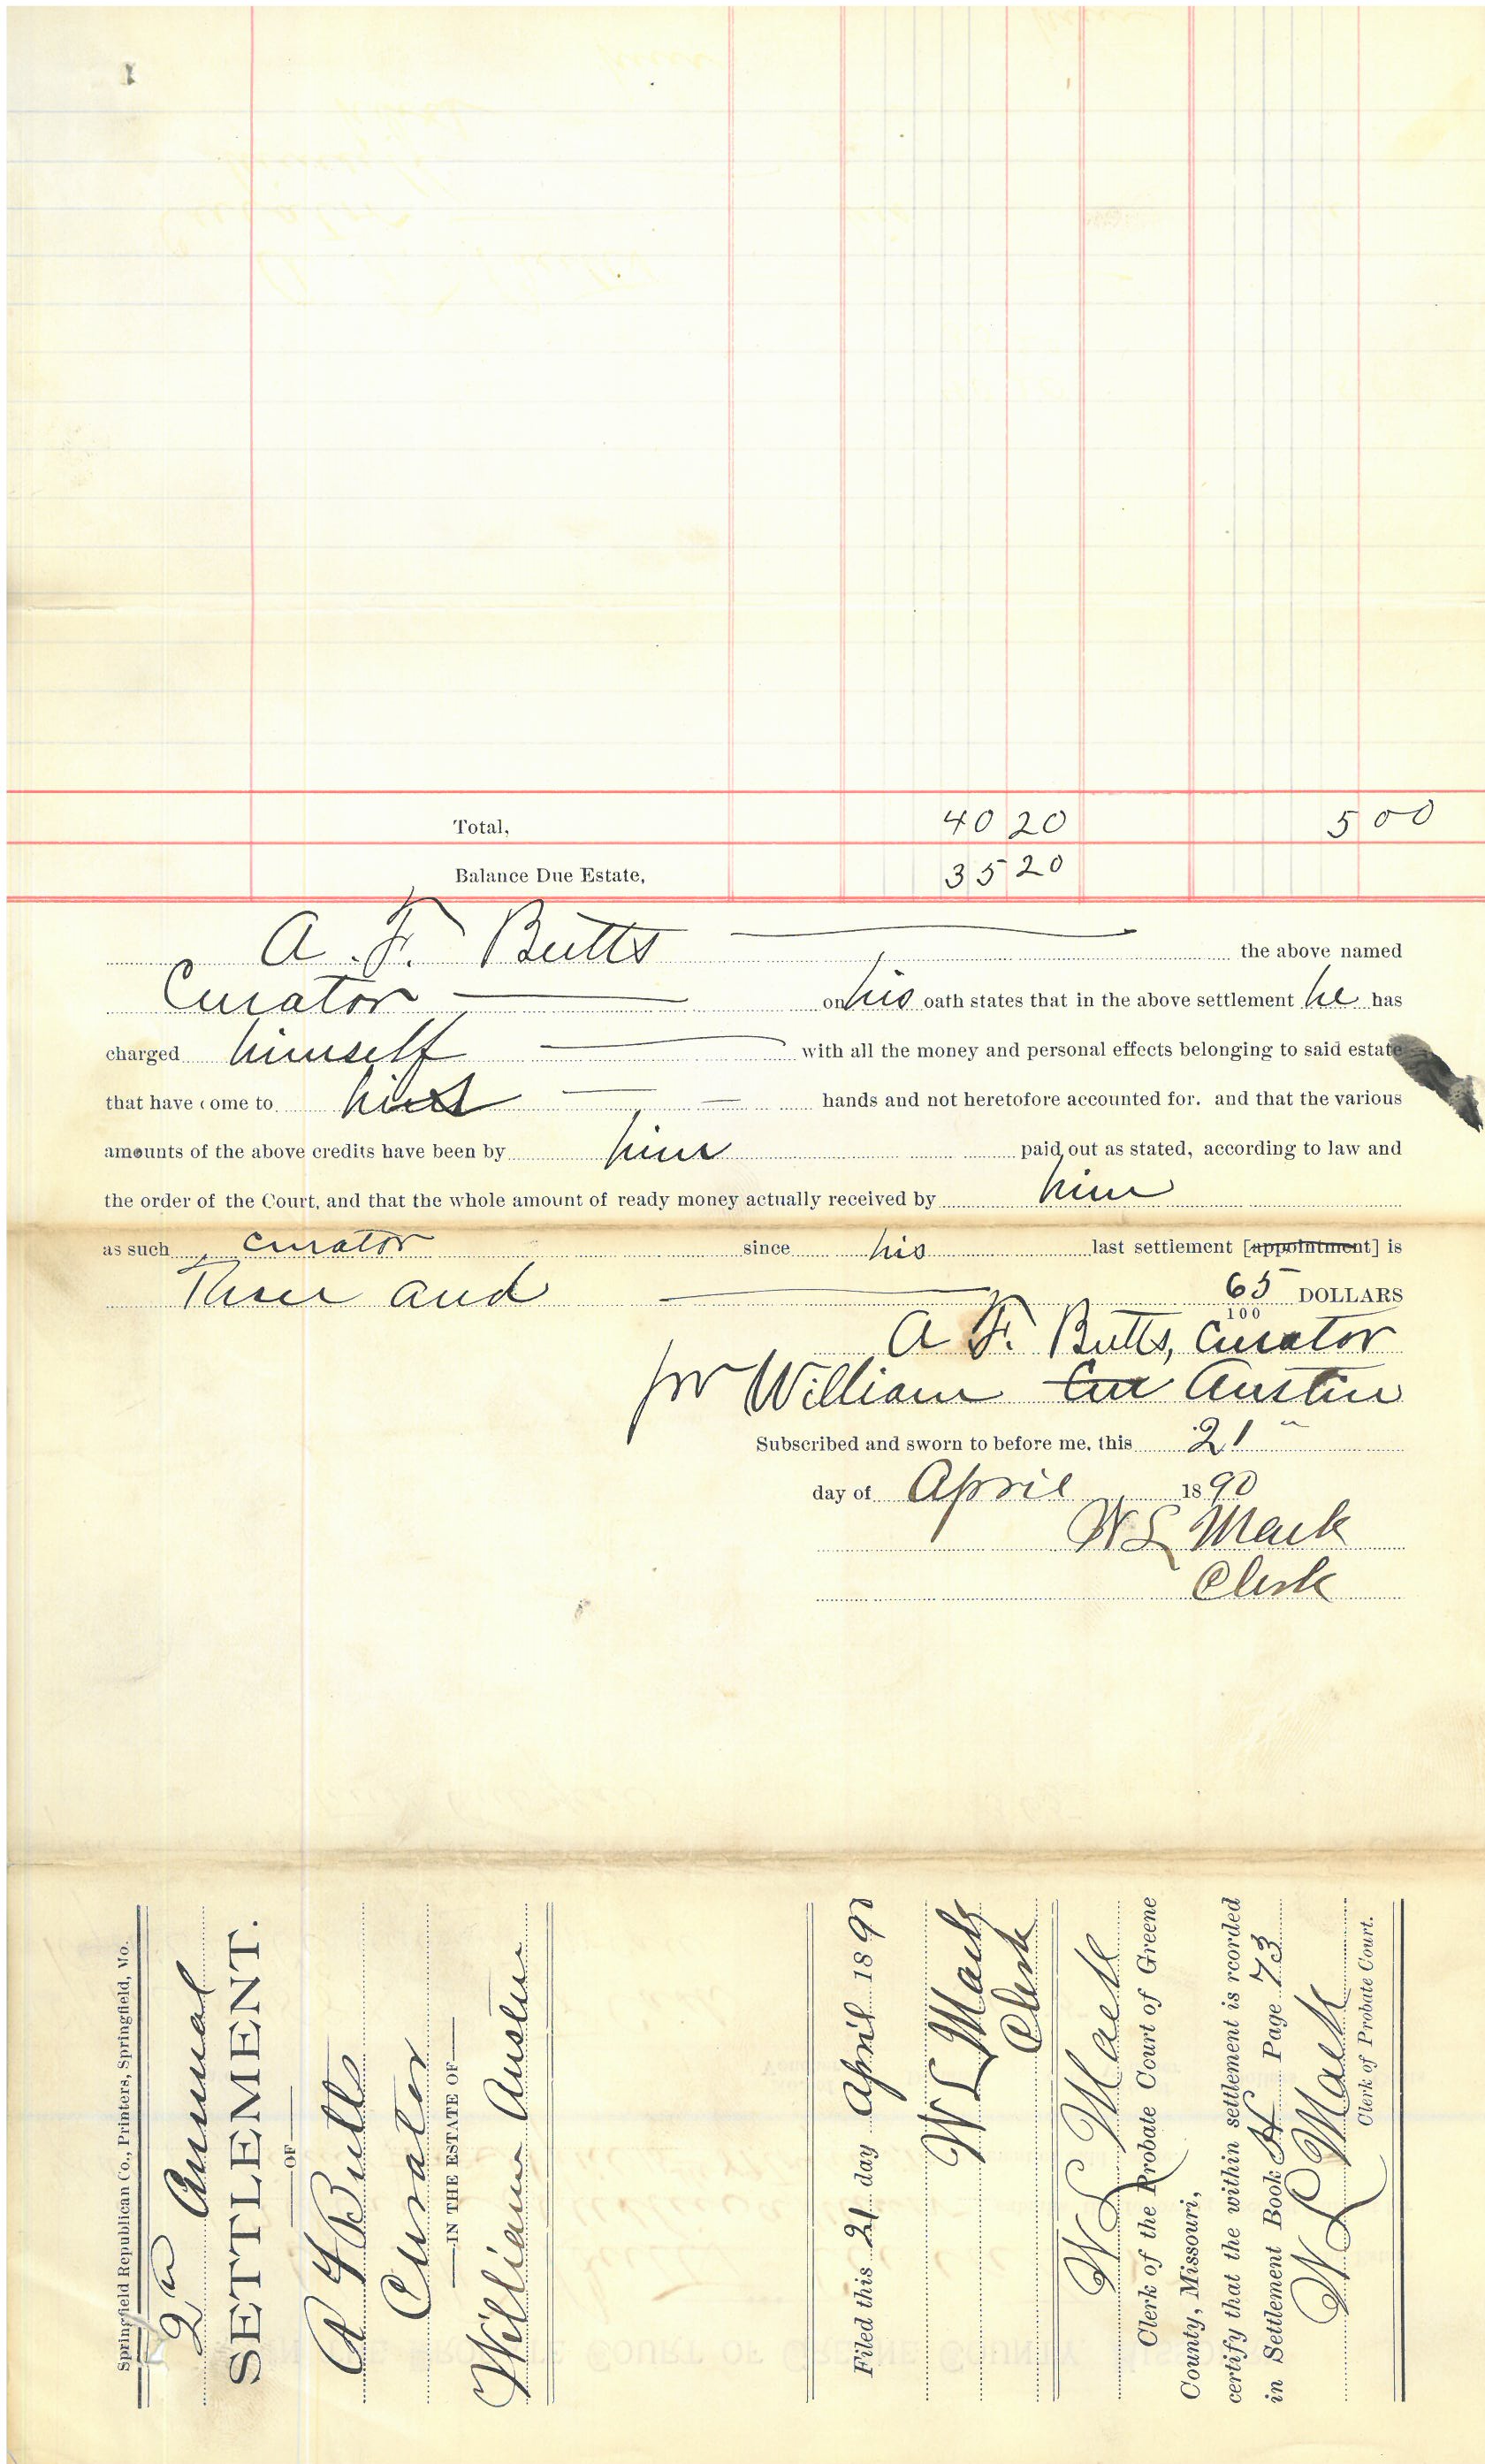 Total, 40 20 5 00
Balance Due Estate, 35 20
A. F. Butts the above named
Curator on his oath states that in the above settlement he has
charged himself with all the money and personal effects belonging to said estate
that have come to his hands and not heretofore accounted for. and that the various
amounts of the above credits have been by him paid out as stated, according to law and
the order of the Court, and that the whole amount of ready money actually received by him
as such curator since his last settlement [appointment] is
Three and 65/100 DOLLARS
A. F. Butts, Curator
for William Cur Austin
Subscribed and sworn to before me, this 21"
day of April 1890
W L Mack
Clerk
Springfield Republican Co., Printers, Springfield, Mo.
2" Annual
SETTLEMENT.
OF
A F Butts
Curator
IN THE ESTATE OF
William Austin
Filed this 21 day April 1890
W L Mack
Clerk
W L Mack
Clerk of the Probate Court of Greene
County, Missouri,
certify that the within settlement is recorded
in Settlement Book H Page 73
W L Mack
Clerk of Probate Court.